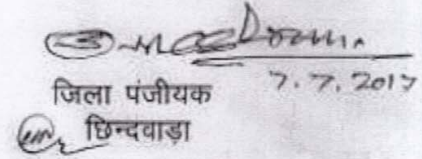 7.7.2017
जिला पंजीयक
छिन्दवाड़ा